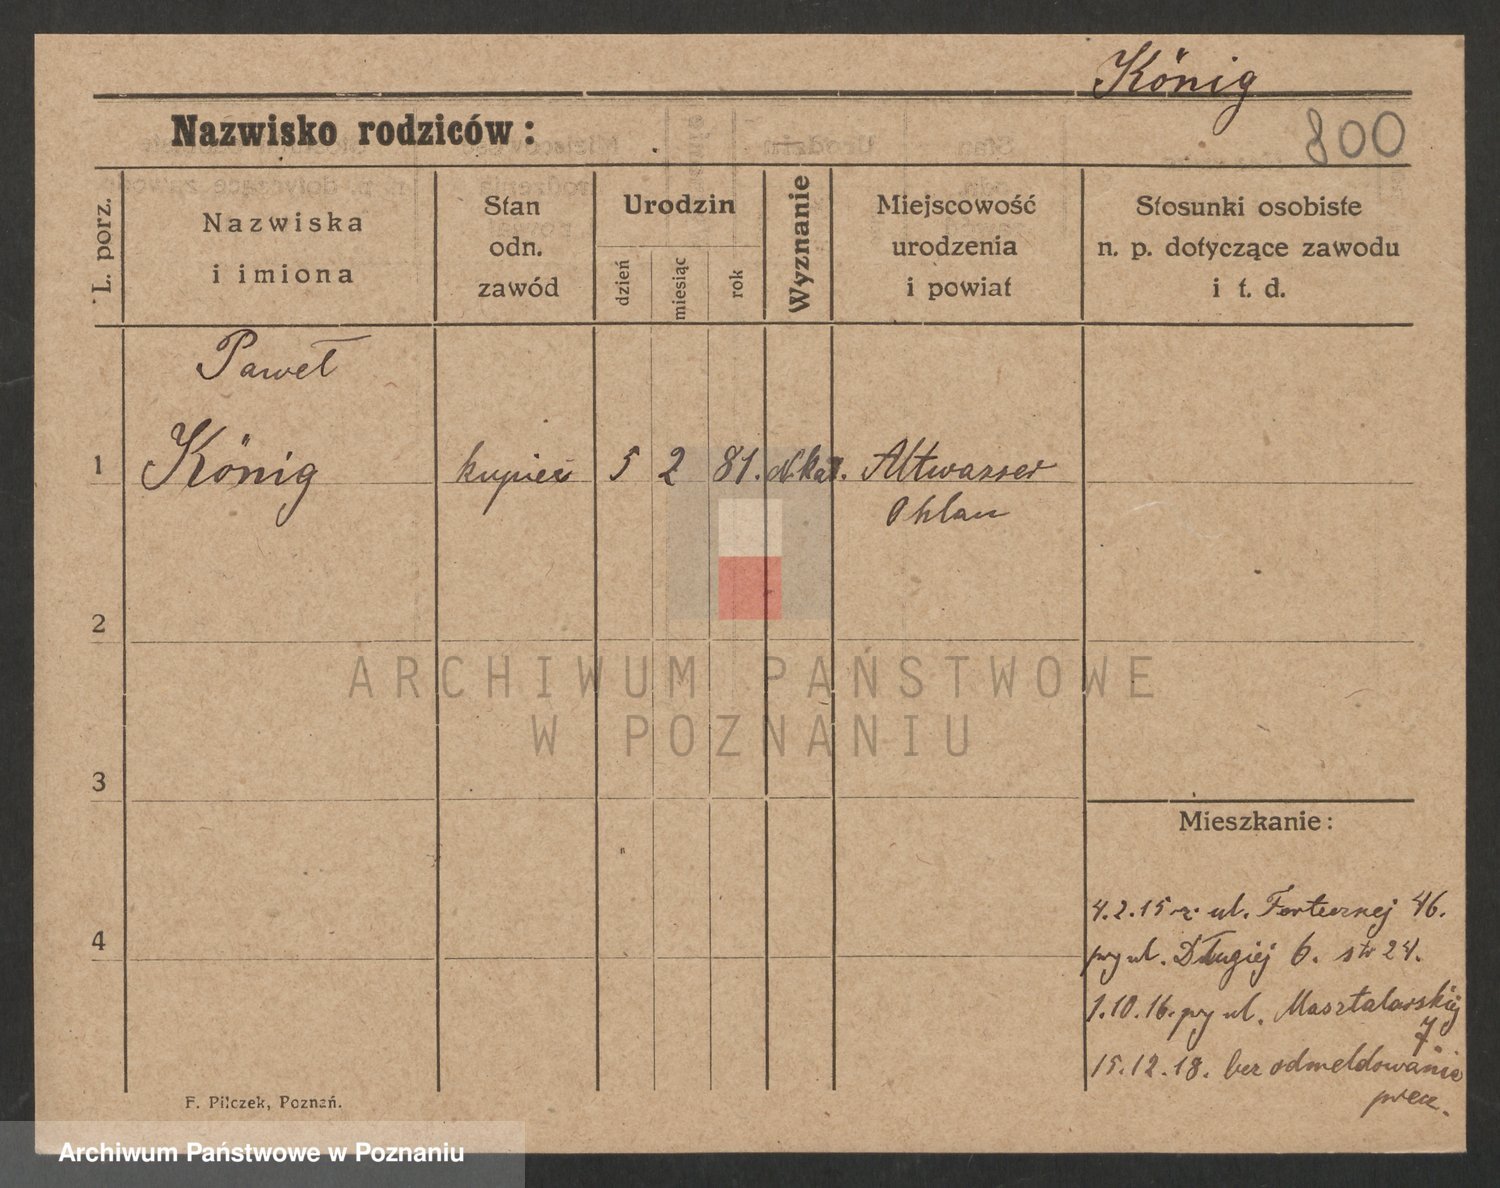 König
800
Nazwisko rodziców:
L. porz.
Nazwiska
i imiona
Stan
odn.
zawód
Urodzin
dzień
miesiąc
rok
Wyznanie
Miejscowość
urodzenia
i powiat
Stosunki osobiste
n. p. dotyczące zawodu
i t. d.
Paweł
1 König kupiec 5 2 81. Altwasser
Ohlau
2
3
4
ARCHIWUM PAŃSTWOWE
W POZNANIU
Mieszkanie:
4.2.15 z ul. 46.
przy ul. Długiej 6. 24.
1.10.16. przy ul. Masztalarskiej
7.
15.12.18. bez odmeldowania
precz.
F. Pilczek, Poznań.
Archiwum Państwowe w Poznaniu